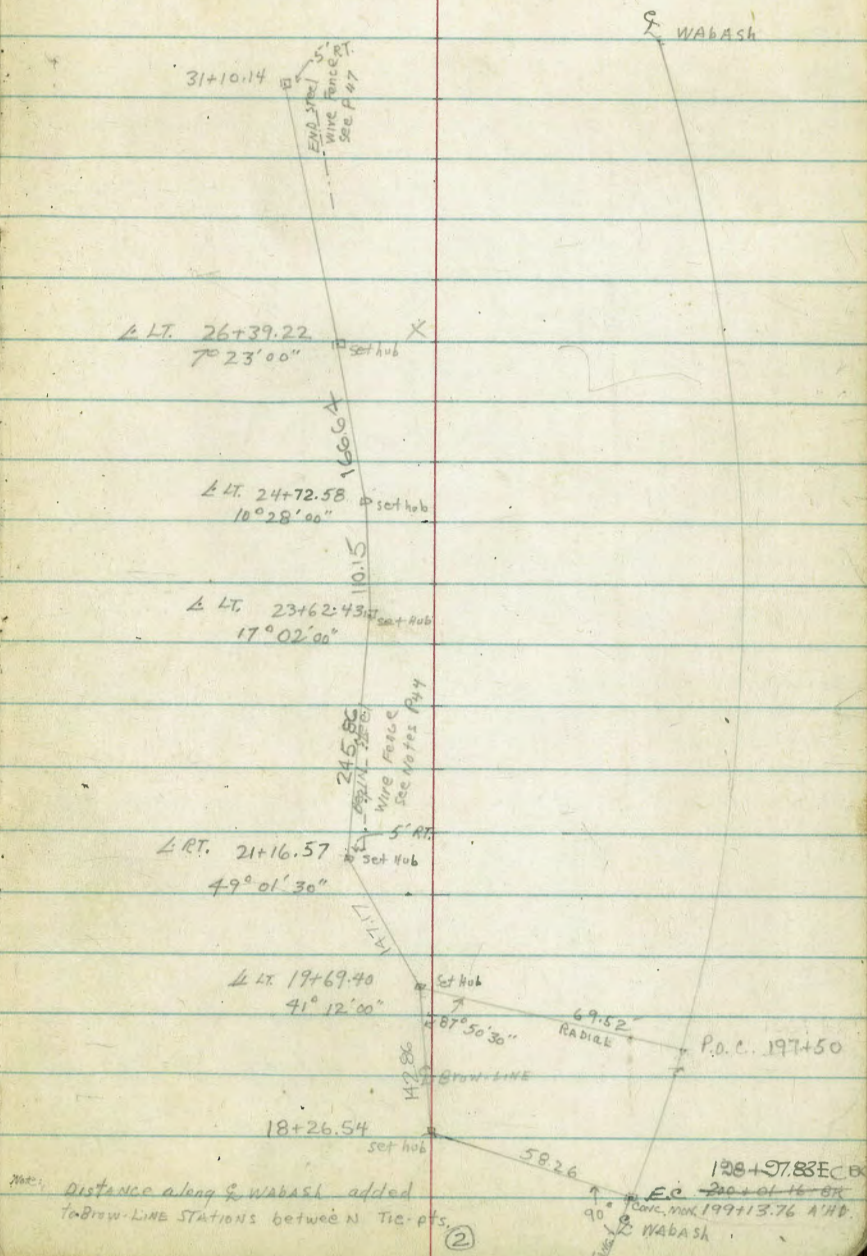 ℄ WAbASh
5' RT.
31+10.14
END Steel
Wire Fence
See P 47
∠ LT. 26+39.22
7° 23' 00"
set hub
166.64
∠ LT. 24+72.58
10° 28' 00"
set hub
110.15
∠ LT. 23+62.43
17° 02' 00"
set Hub
245.86
Wire Fence
See Notes P44
5' RT.
∠ RT. 21+16.57
49° 01' 30"
set Hub
147.17
∠ LT. 19+69.40
41° 12' 00"
Set Hub
87° 50' 30"
69.52
RADIAL
P.O.C. 197+50
142.86
℄ Brow-LINE
18+26.54
set hub
58.26
198+97.83 EC BK
E.C. 200+01.16 BK
Conc. Mon. 199+13.76 A'HD.
90°
℄ WABASH
Note:
Distance along ℄ WABASH added
to Brow-LINE STATIONS betweeN Tie-pts.
2